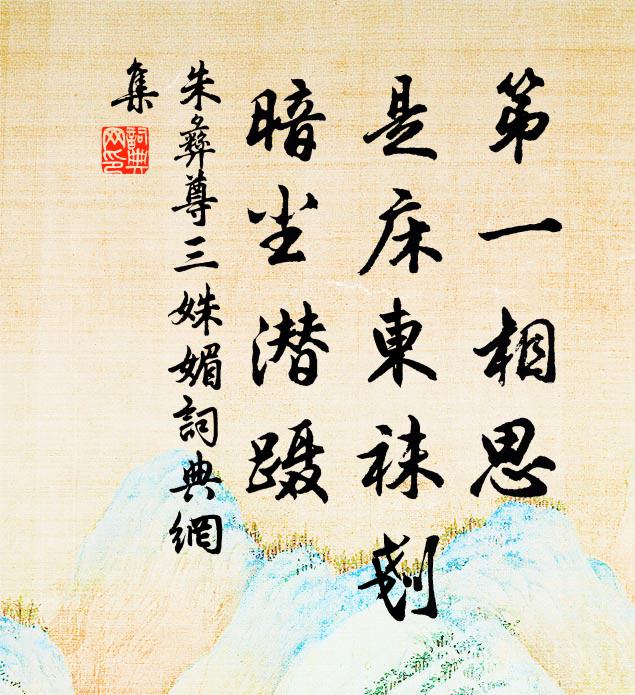 第一相思
是床東袜刬
暗尘潜蹑
朱彝尊三姝媚詞典網
集
詞典
网印